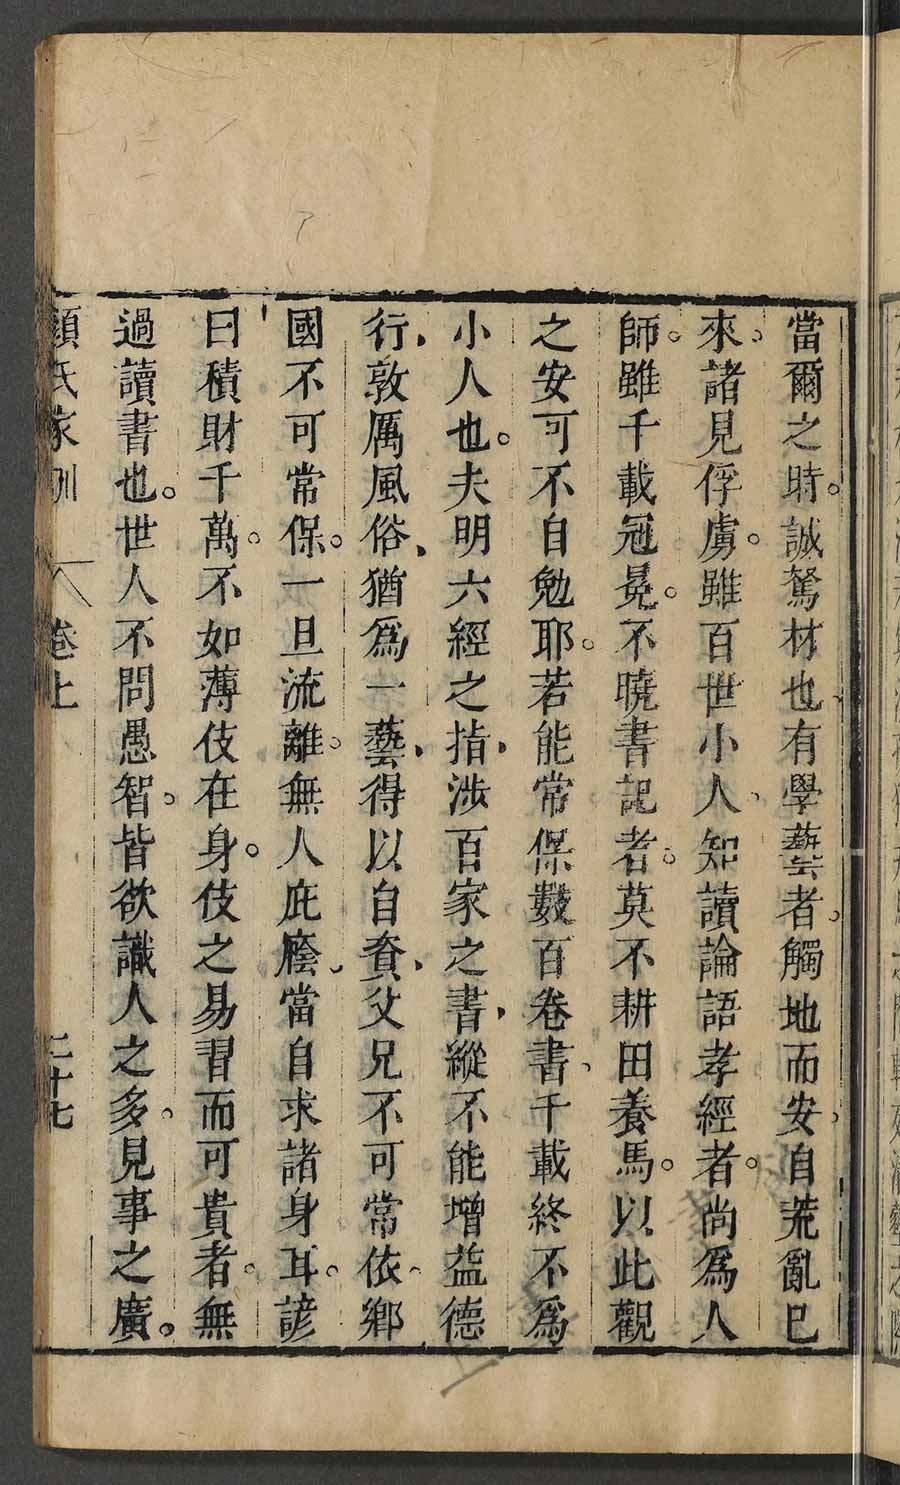 當爾之時。誠駑材也、有學藝者。觸地而安、自荒亂已
來。諸見俘虜。雖百世小人、知讀論語孝經者。尚爲人
師。雖千載冠冕。不曉書記者。莫不耕田養馬。以此觀
之安可不自勉耶。若能常保數百卷書、千載終不爲
小人也。夫明六經之指、涉百家之書、縱不能增益德
行、敦厲風俗、猶爲一藝、得以自資、父兄不可常依、鄉
國不可常保。一旦流離。無人庇廕、當自求諸身耳。諺
曰積財千萬。不如薄伎在身。伎之易習而可貴者。無
過讀書也。世人不問愚智。皆欲識人之多。見事之廣。
顏氏家訓 卷上 二十七